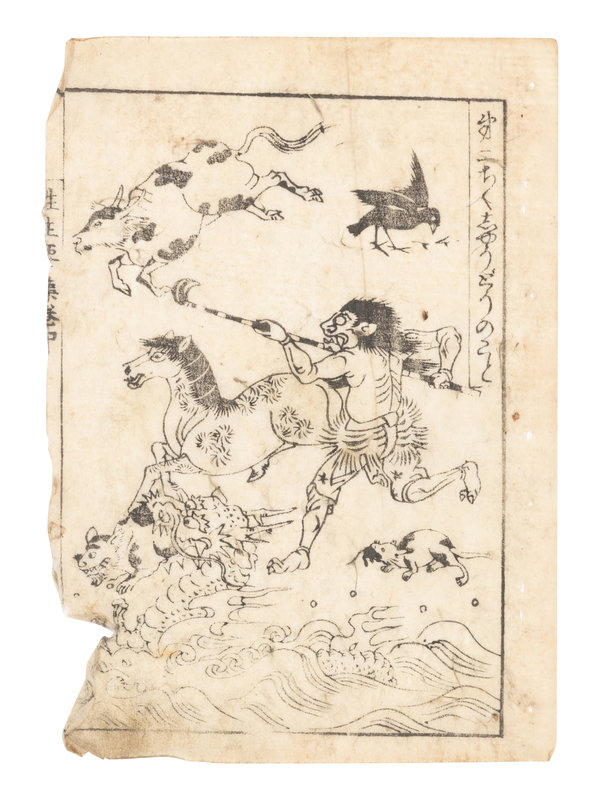 第二ちくしやうどうのこと
往生要集巻